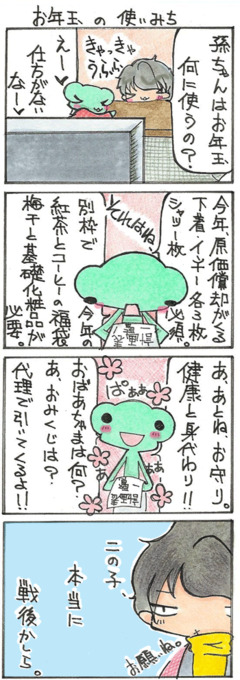 お年玉の使いみち
孫ちゃんはお年玉
何に使うの?
きゃっきゃ
うふふ
えー♥
仕方がない
なー♥
それはね、
今年、原価償却がくる
下着・イヤー各3枚
シャツ一枚
必須。
別枠で
紅茶とコーヒーの福袋
今年の
梅干と基礎化粧品が
必要。
あ、あとね、お守り。
健康と身代わり!!
ぱぁぁ
ああ
おばあちゃまは何?
あ、おみくじは?
代理で引いてくるよ!!
この子、
本当に
戦後かしら。
お願いね。